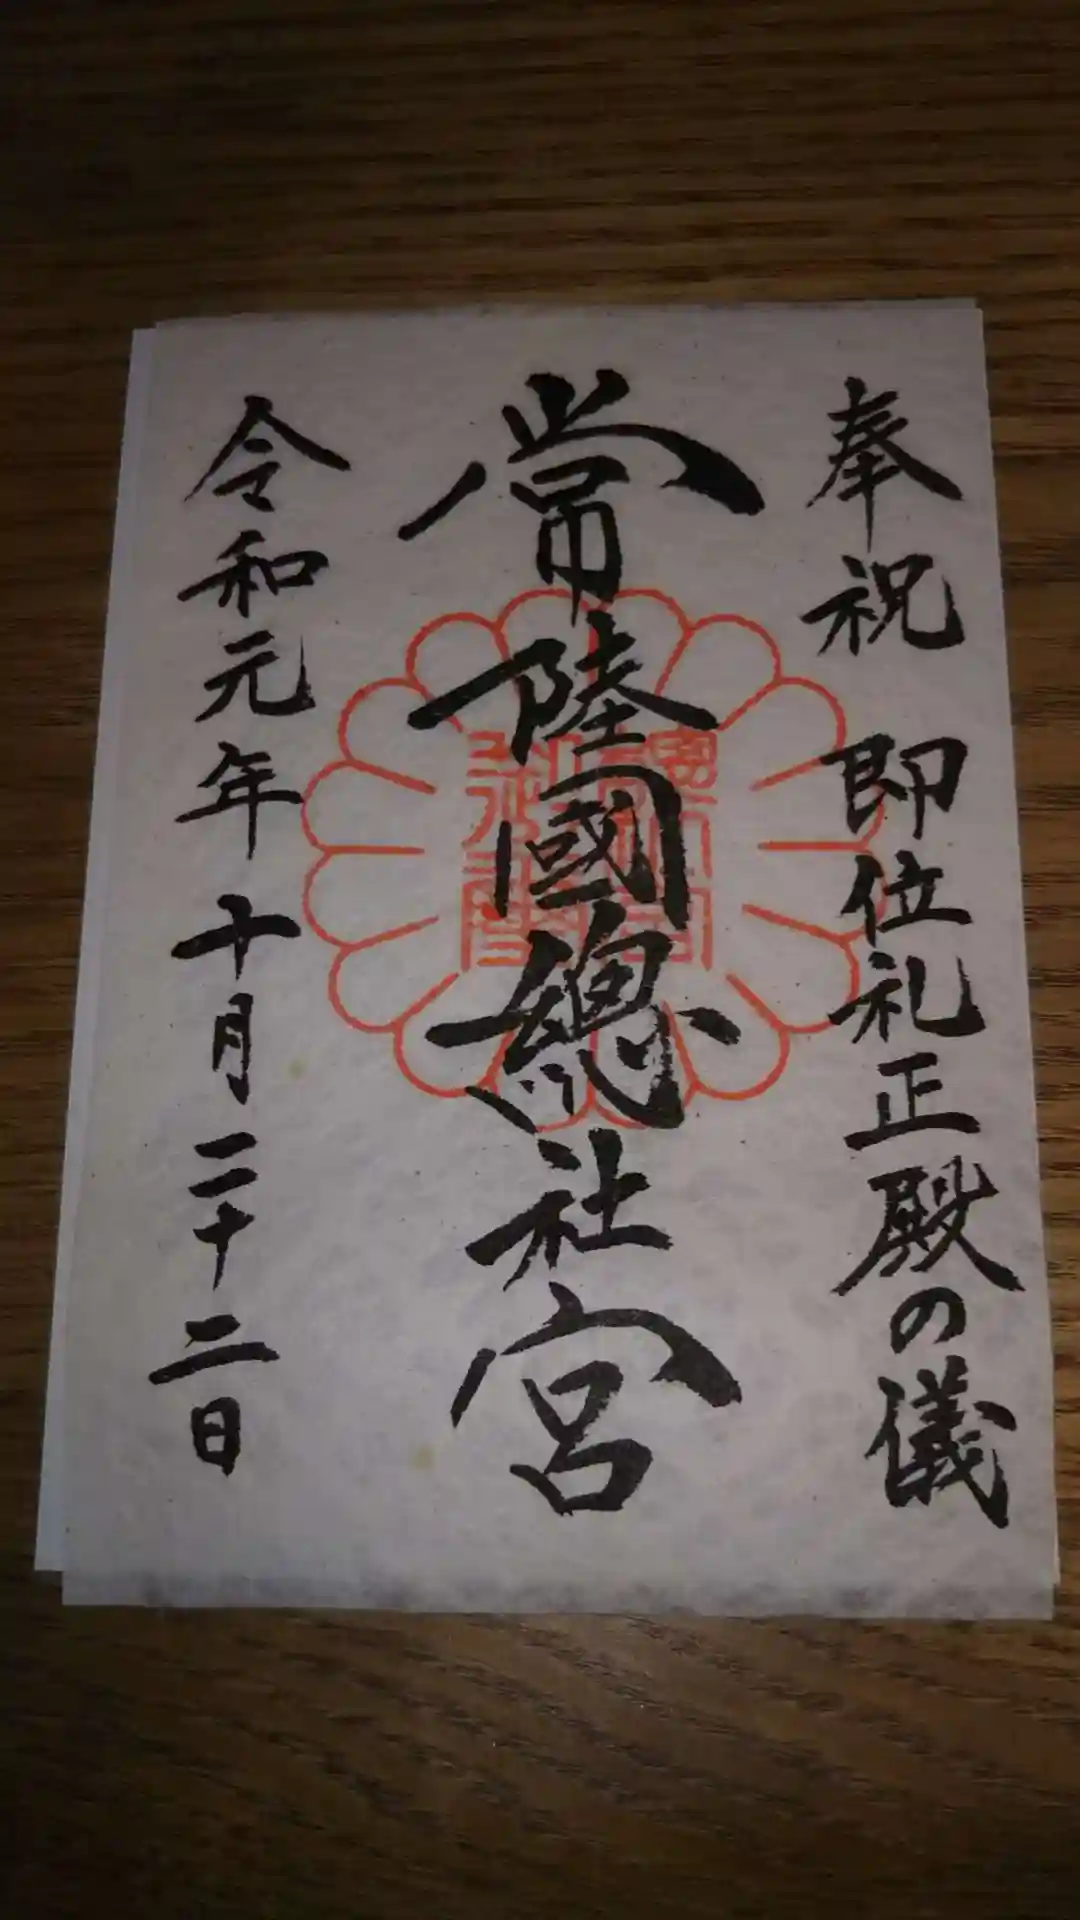 奉祝 即位礼正殿の儀
常陸國總社宮
令和元年十月二十二日